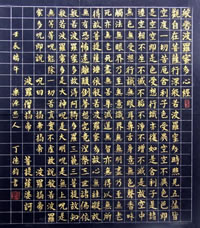 般若波羅蜜多心經
觀自在菩薩行深般若波羅蜜多時照見五蘊皆
空度一切苦厄舍利子色不異空空不異色色即是
空空即是色受想行識亦復如是舍利子是諸法
空相不生不滅不垢不淨不增不減是故空中
無色無受想行識無眼耳鼻舌身意無色聲香味
觸法無眼界乃至無意識界無無明亦無無明盡乃至
無老死亦無老死盡無苦集滅道無智亦無得以無所得故
菩提薩埵依般若波羅蜜多故心無罣礙無罣礙故
無有恐怖遠離顛倒夢想究竟涅槃三世諸佛依
般若波羅蜜多故得阿耨多羅三藐三菩提故知
般若波羅蜜多是大神呪是大明呪是無上呪是
無等等呪能除一切苦真實不虛故說般若波羅蜜
多呪即說
呪曰 揭帝揭帝 波羅揭帝
波羅僧揭帝 菩提薩婆訶
丁德鈞書